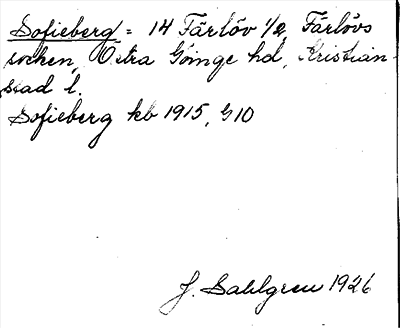 Sofieberg = 14 Färlöv 1/2, Färlövs
socken, Östra Göinge hd, Kristian-
stad l.
Sofieberg kb 1915, G10
J. Sahlgren 1926